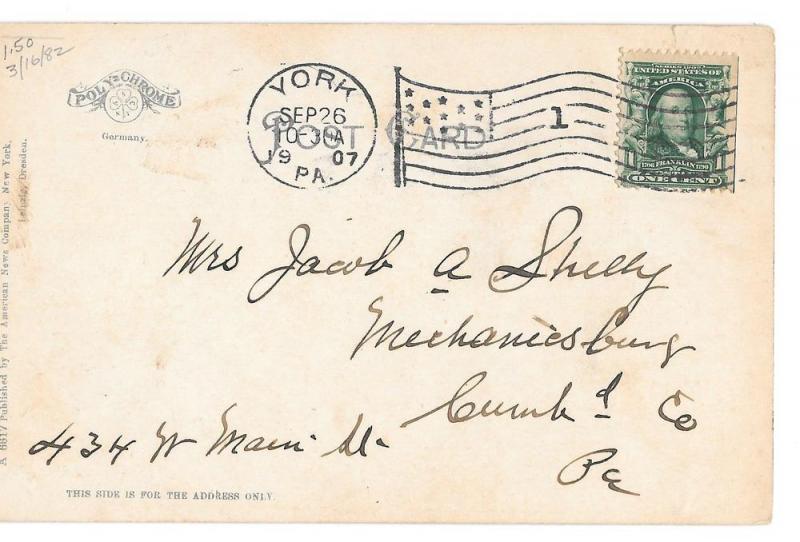 1.50
3/16/82
POLY=CHROME
Germany.
YORK
SEP 26
10-30A
19 07
PA.
POST CARD
1
SERIES 1902
UNITED STATES OF
AMERICA
1706 FRANKLIN 1790
ONE CENT
Mrs Jacob A Shelly
Mechanicsburg
Cumb'd Co
Pa
434 W Main St.
THIS SIDE IS FOR THE ADDRESS ONLY.
A 6817 Published by The American News Company New York.
Leipzig, Dresden.